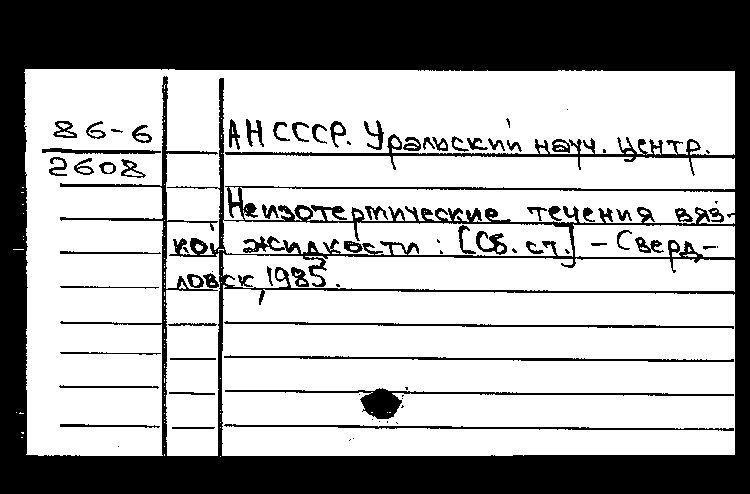 86-6
2608
АН СССР. Уральский науч. центр.
Неизотермические течения вяз-
кой жидкости : [Сб. ст.] – Сверд-
ловск, 1985.